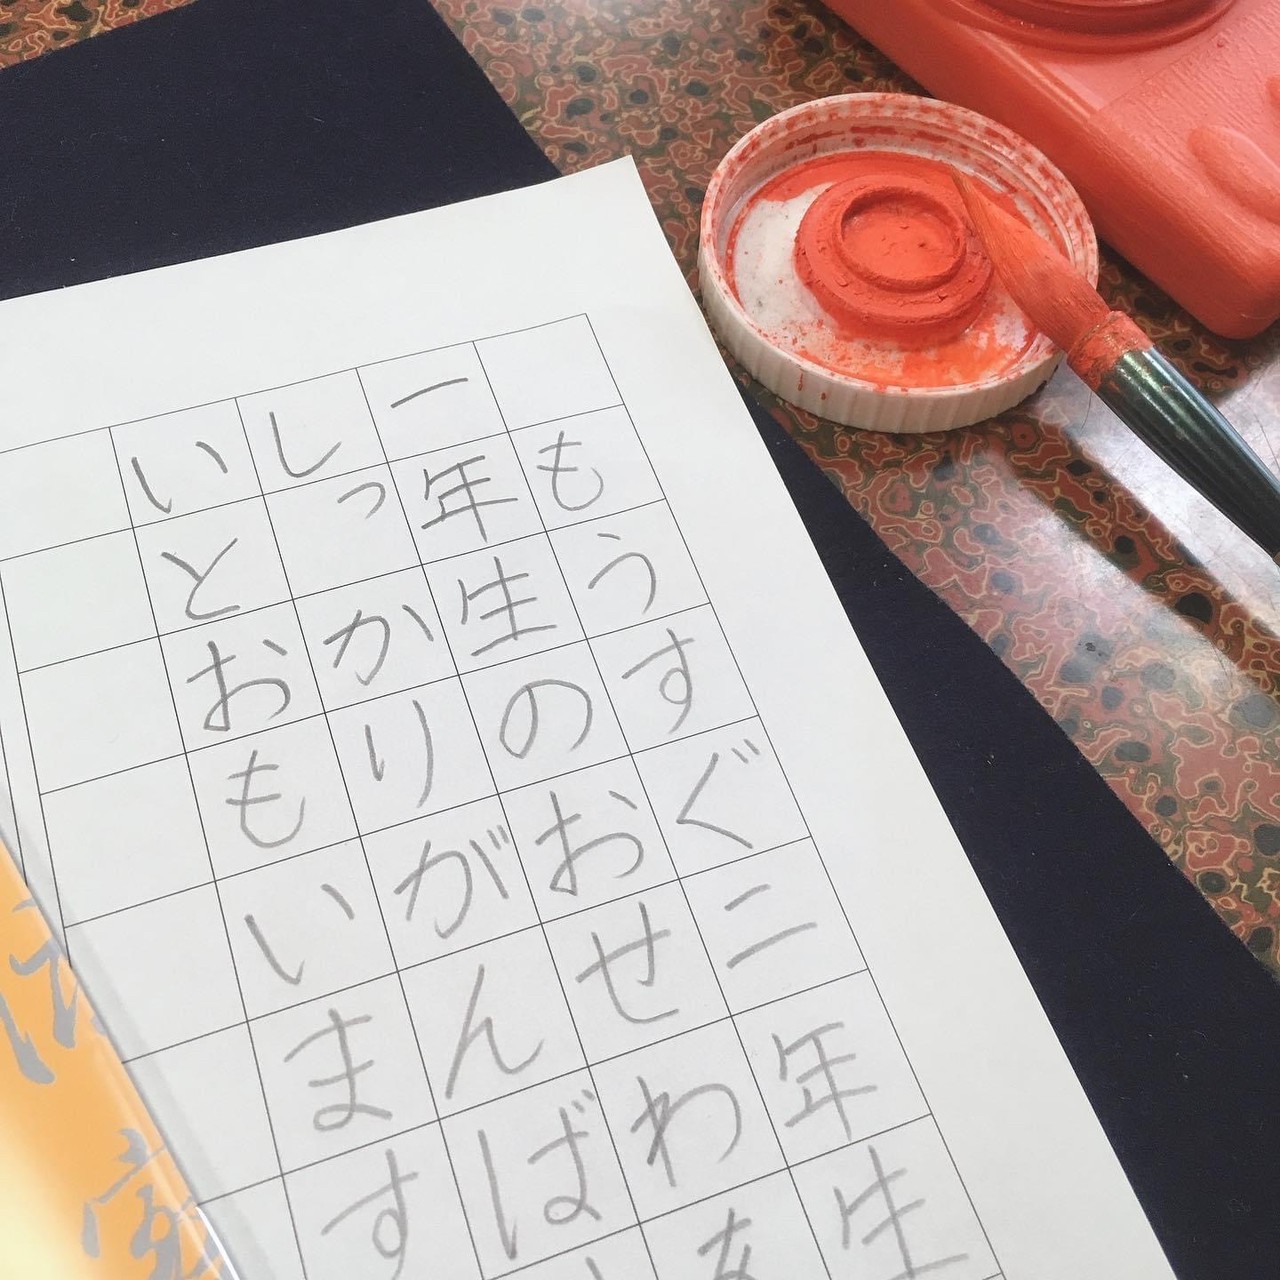 もうすぐ二年生
一年生のおせわを
しっかりがんば
いとおもいます